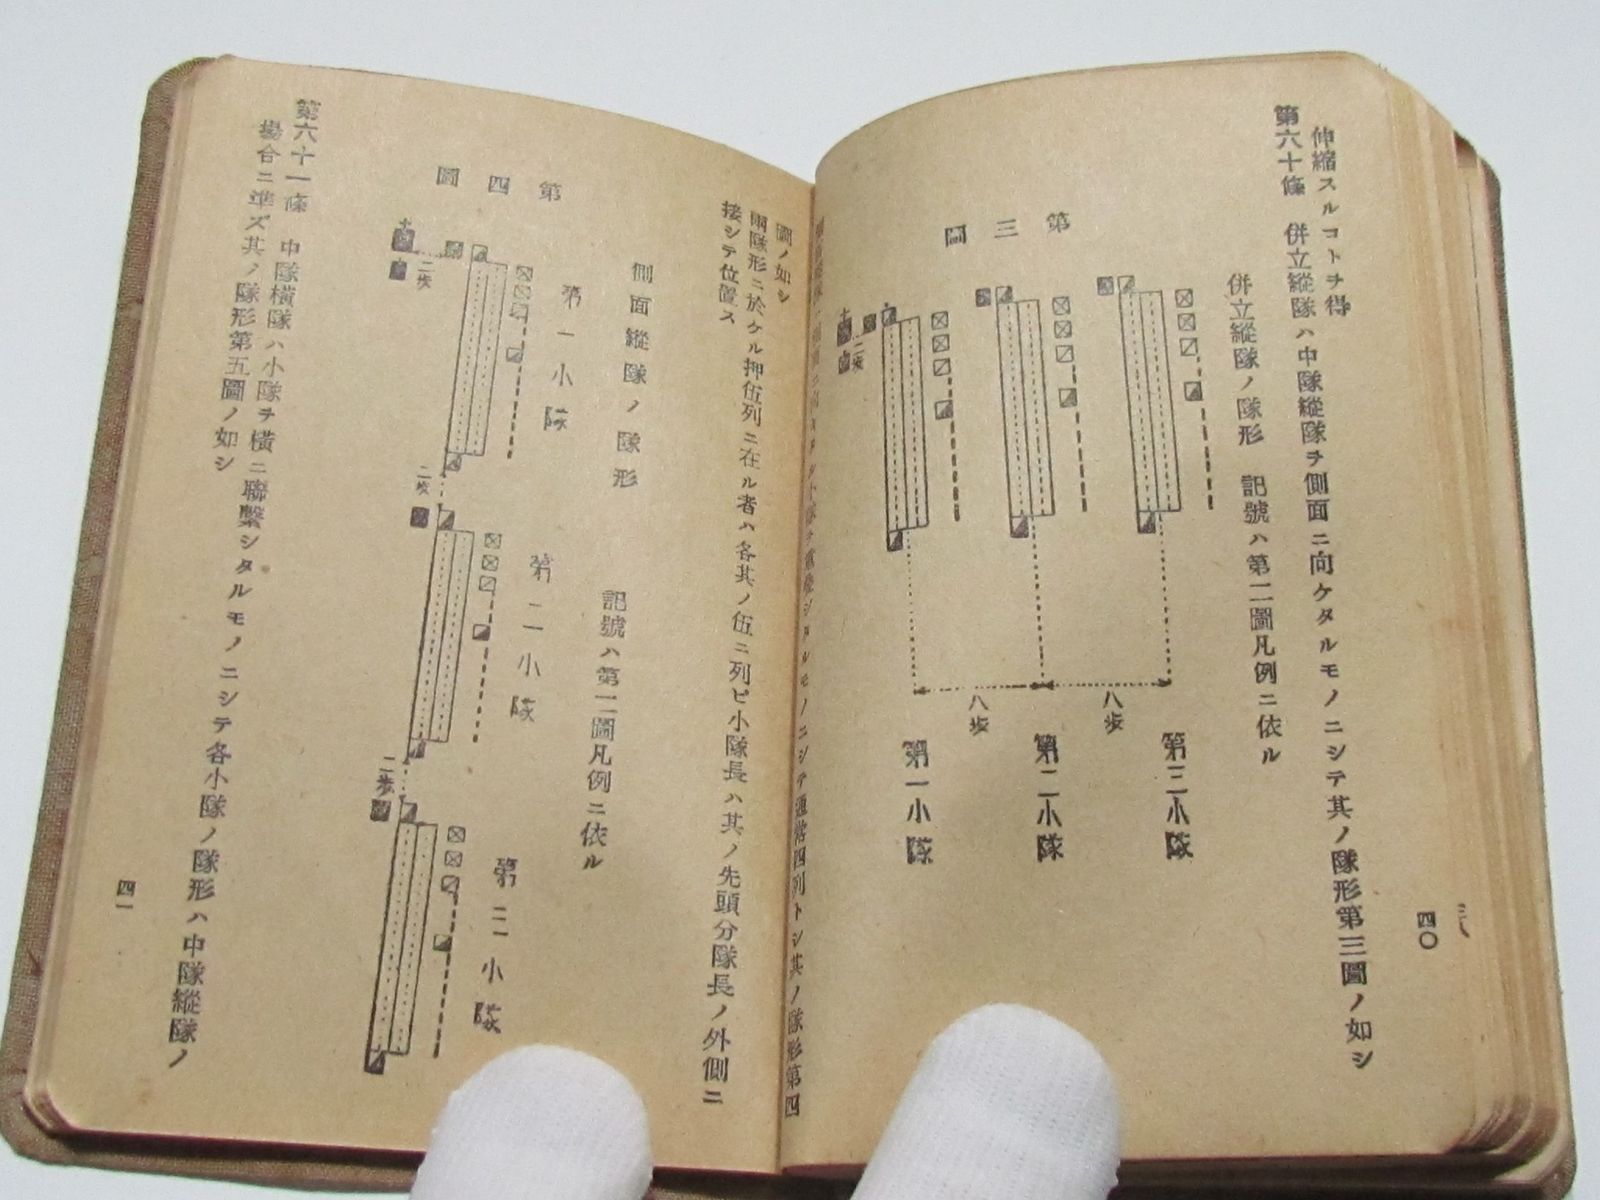 伸縮スルコトヲ得
第六十條 併立縱隊ハ中隊縱隊ヲ側面ニ向ケタルモノニシテ其ノ隊形第三圖ノ如シ
併立縱隊ノ隊形 記號ハ第二圖凡例ニ依ル
第三圖
二歩
八歩
八歩
第三小隊
第二小隊
第一小隊
四〇
ニシテ通常四列トシ其ノ隊形第四
圖ノ如シ
兩隊形ニ於ケル押伍列ニ在ル者ハ各其ノ伍ニ列ビ小隊長ハ其ノ先頭分隊長ノ外側ニ
接シテ位置ス
側面縱隊ノ隊形
記號ハ第二圖凡例ニ依ル
第四圖
第一小隊
二歩
二歩
第二小隊
二歩
第三小隊
第六十一條 中隊橫隊ハ小隊ヲ橫ニ聯繫シタルモノニシテ各小隊ノ隊形ハ中隊縱隊ノ
場合ニ準ズ其ノ隊形第五圖ノ如シ
四一